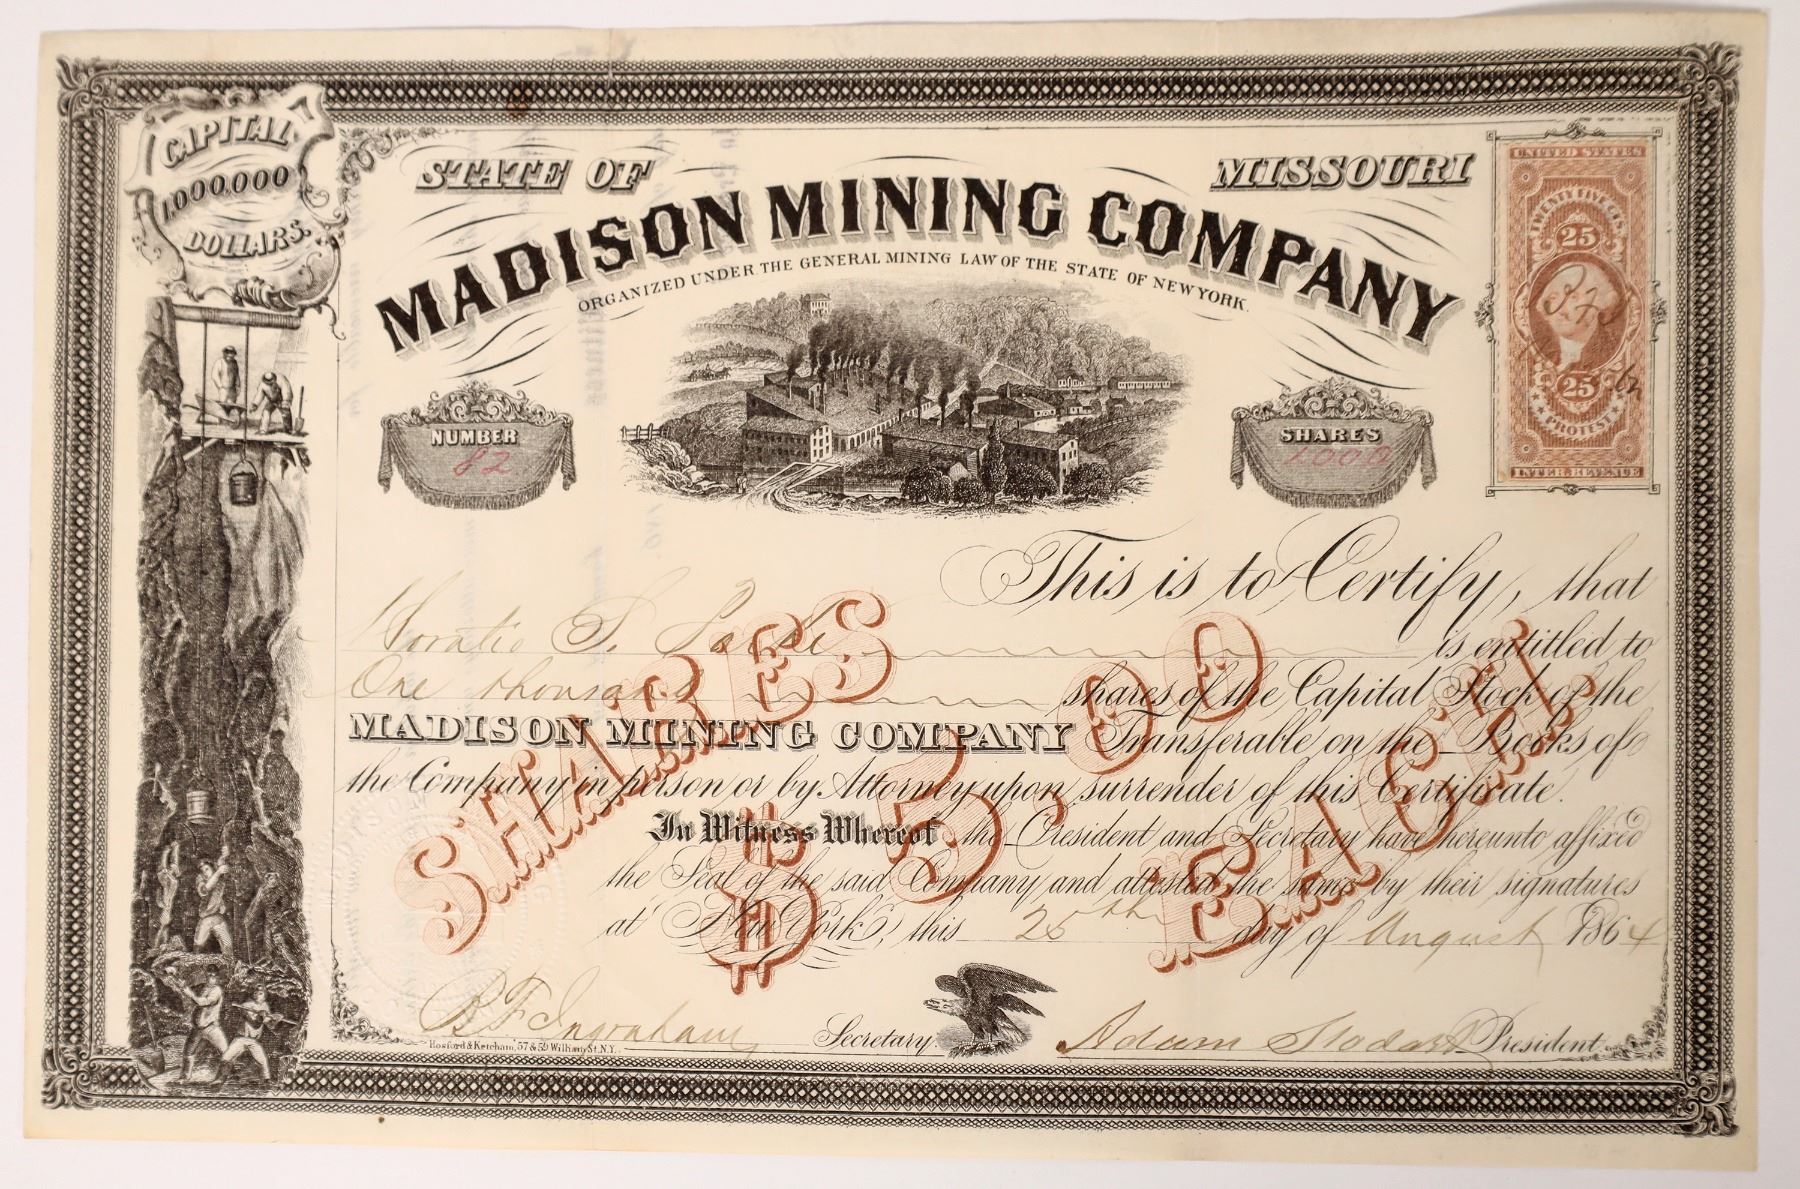 CAPITAL
1,000,000
DOLLARS.
STATE OF MISSOURI
MADISON MINING COMPANY
ORGANIZED UNDER THE GENERAL MINING LAW OF THE STATE OF NEW YORK.
NUMBER
82
SHARES
1000
UNITED STATES
TWENTY FIVE CTS.
25
25
PROTEST
INTER. REVENUE
This is to Certify, that
Horatio S. is entitled to
One thousand shares of the Capital Stock of the
MADISON MINING COMPANY Transferable on the Books of
the Company in person or by Attorney upon surrender of this Certificate.
In Witness Whereof the President and Secretary have hereunto affixed
the Seal of the said Company and attested the same by their signatures
at New York, this 25th day of August 1864
SHARES $5.00 EACH.
B F Ingraham Secretary. Adam Stodart President.
Hosford & Ketcham, 57 & 59 William St. N.Y.